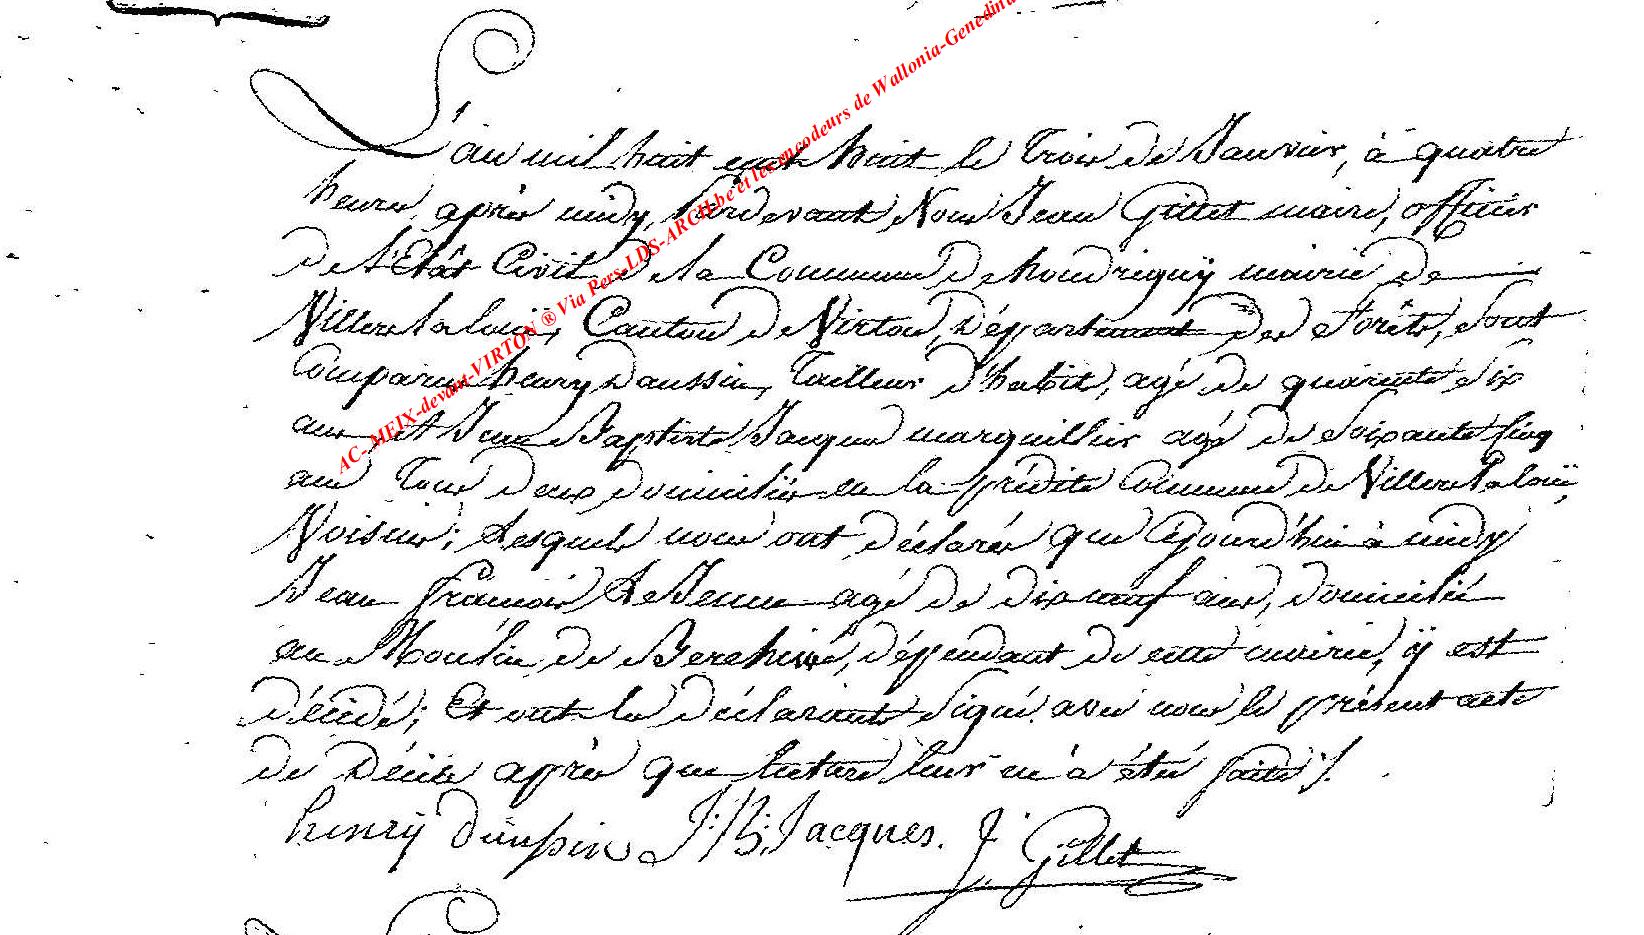 L'an mil huit cent huit le Trois de Janvier, à quatre
heures après midy, Pardevant Nous Jean Gillet maire, officier
de l'Etât Civil de la Commune de houdrigny mairie de
Villers la loüe, Canton de Virton, Département des Forêts, sont
Comparus henry Daussin, Tailleur d'habit, agé de quarante six
ans et Jean Baptiste Jacques marguillier agé de soixante cinq
ans Tous deux domiciliés en la prédite Commune de Villers la loüe,
Voisins; Lesquels nous ont déclarés que Cejourd'hui à midy
Jean françois LeJeune agé de dix neuf ans, domicilié
au Moulin de Berchivé, dépendant de cette mairie, ÿ est
décédé; Et ont les déclarants signé avec nous le présent acte
de Décès après que lecture leur en a été faite ./.
henrÿ daussin J: B: Jacques. J. Gillet
AC-MEIX-devant-VIRTON ® Via Pers-LDS-ARCH.be et les encodeurs de Wallonia-Genedina